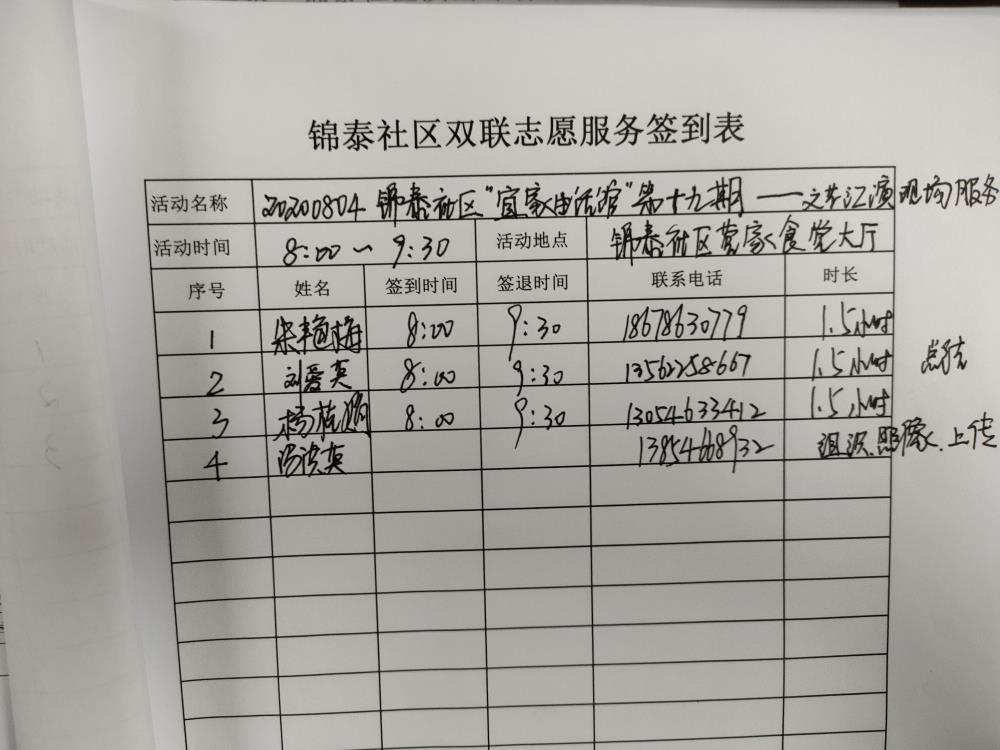 锦泰社区双联志愿服务签到表
活动名称 20200804 锦泰社区"宜家生活馆"第十九期——文艺汇演现场服务
活动时间 8:00~9:30 活动地点 锦泰社区莞家食堂大厅
序号 姓名 签到时间 签退时间 联系电话 时长
1 柴艳梅 8:00 9:30 18678630779 1.5小时
2 刘爱英 8:00 9:30 13562258667 1.5小时
3 杨桂 8:00 9:30 13054633412 1.5小时
4 洪英 13854668932 组织.照像.上传